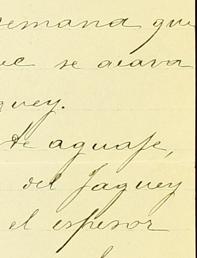 semana que
se acava
guey.
de aguaje,
del Jaguey
el espesor